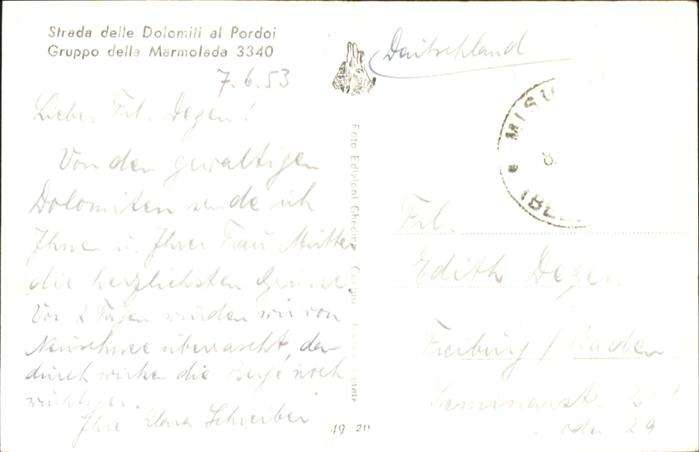 Strada delle Dolomiti al Pordoi
Gruppo della Marmolada 3340
7.6.53
Liebe Frl. Degen!
Von den gewaltigen
Dolomiten sende ich
Ihne u. Ihrer Frau Mutter
die herzlichsten Grüsse.
Vor 2 Tagen wurden wir von
Neuschnee überrascht, da-
durch wirken die Berge noch
wuchtiger.
Ihre Schreiber
Foto Edizioni Ghedina
Deutschland
MISU
Frl.
Edith Degen
Freiburg / Baden
Seminarstr.
oder 29